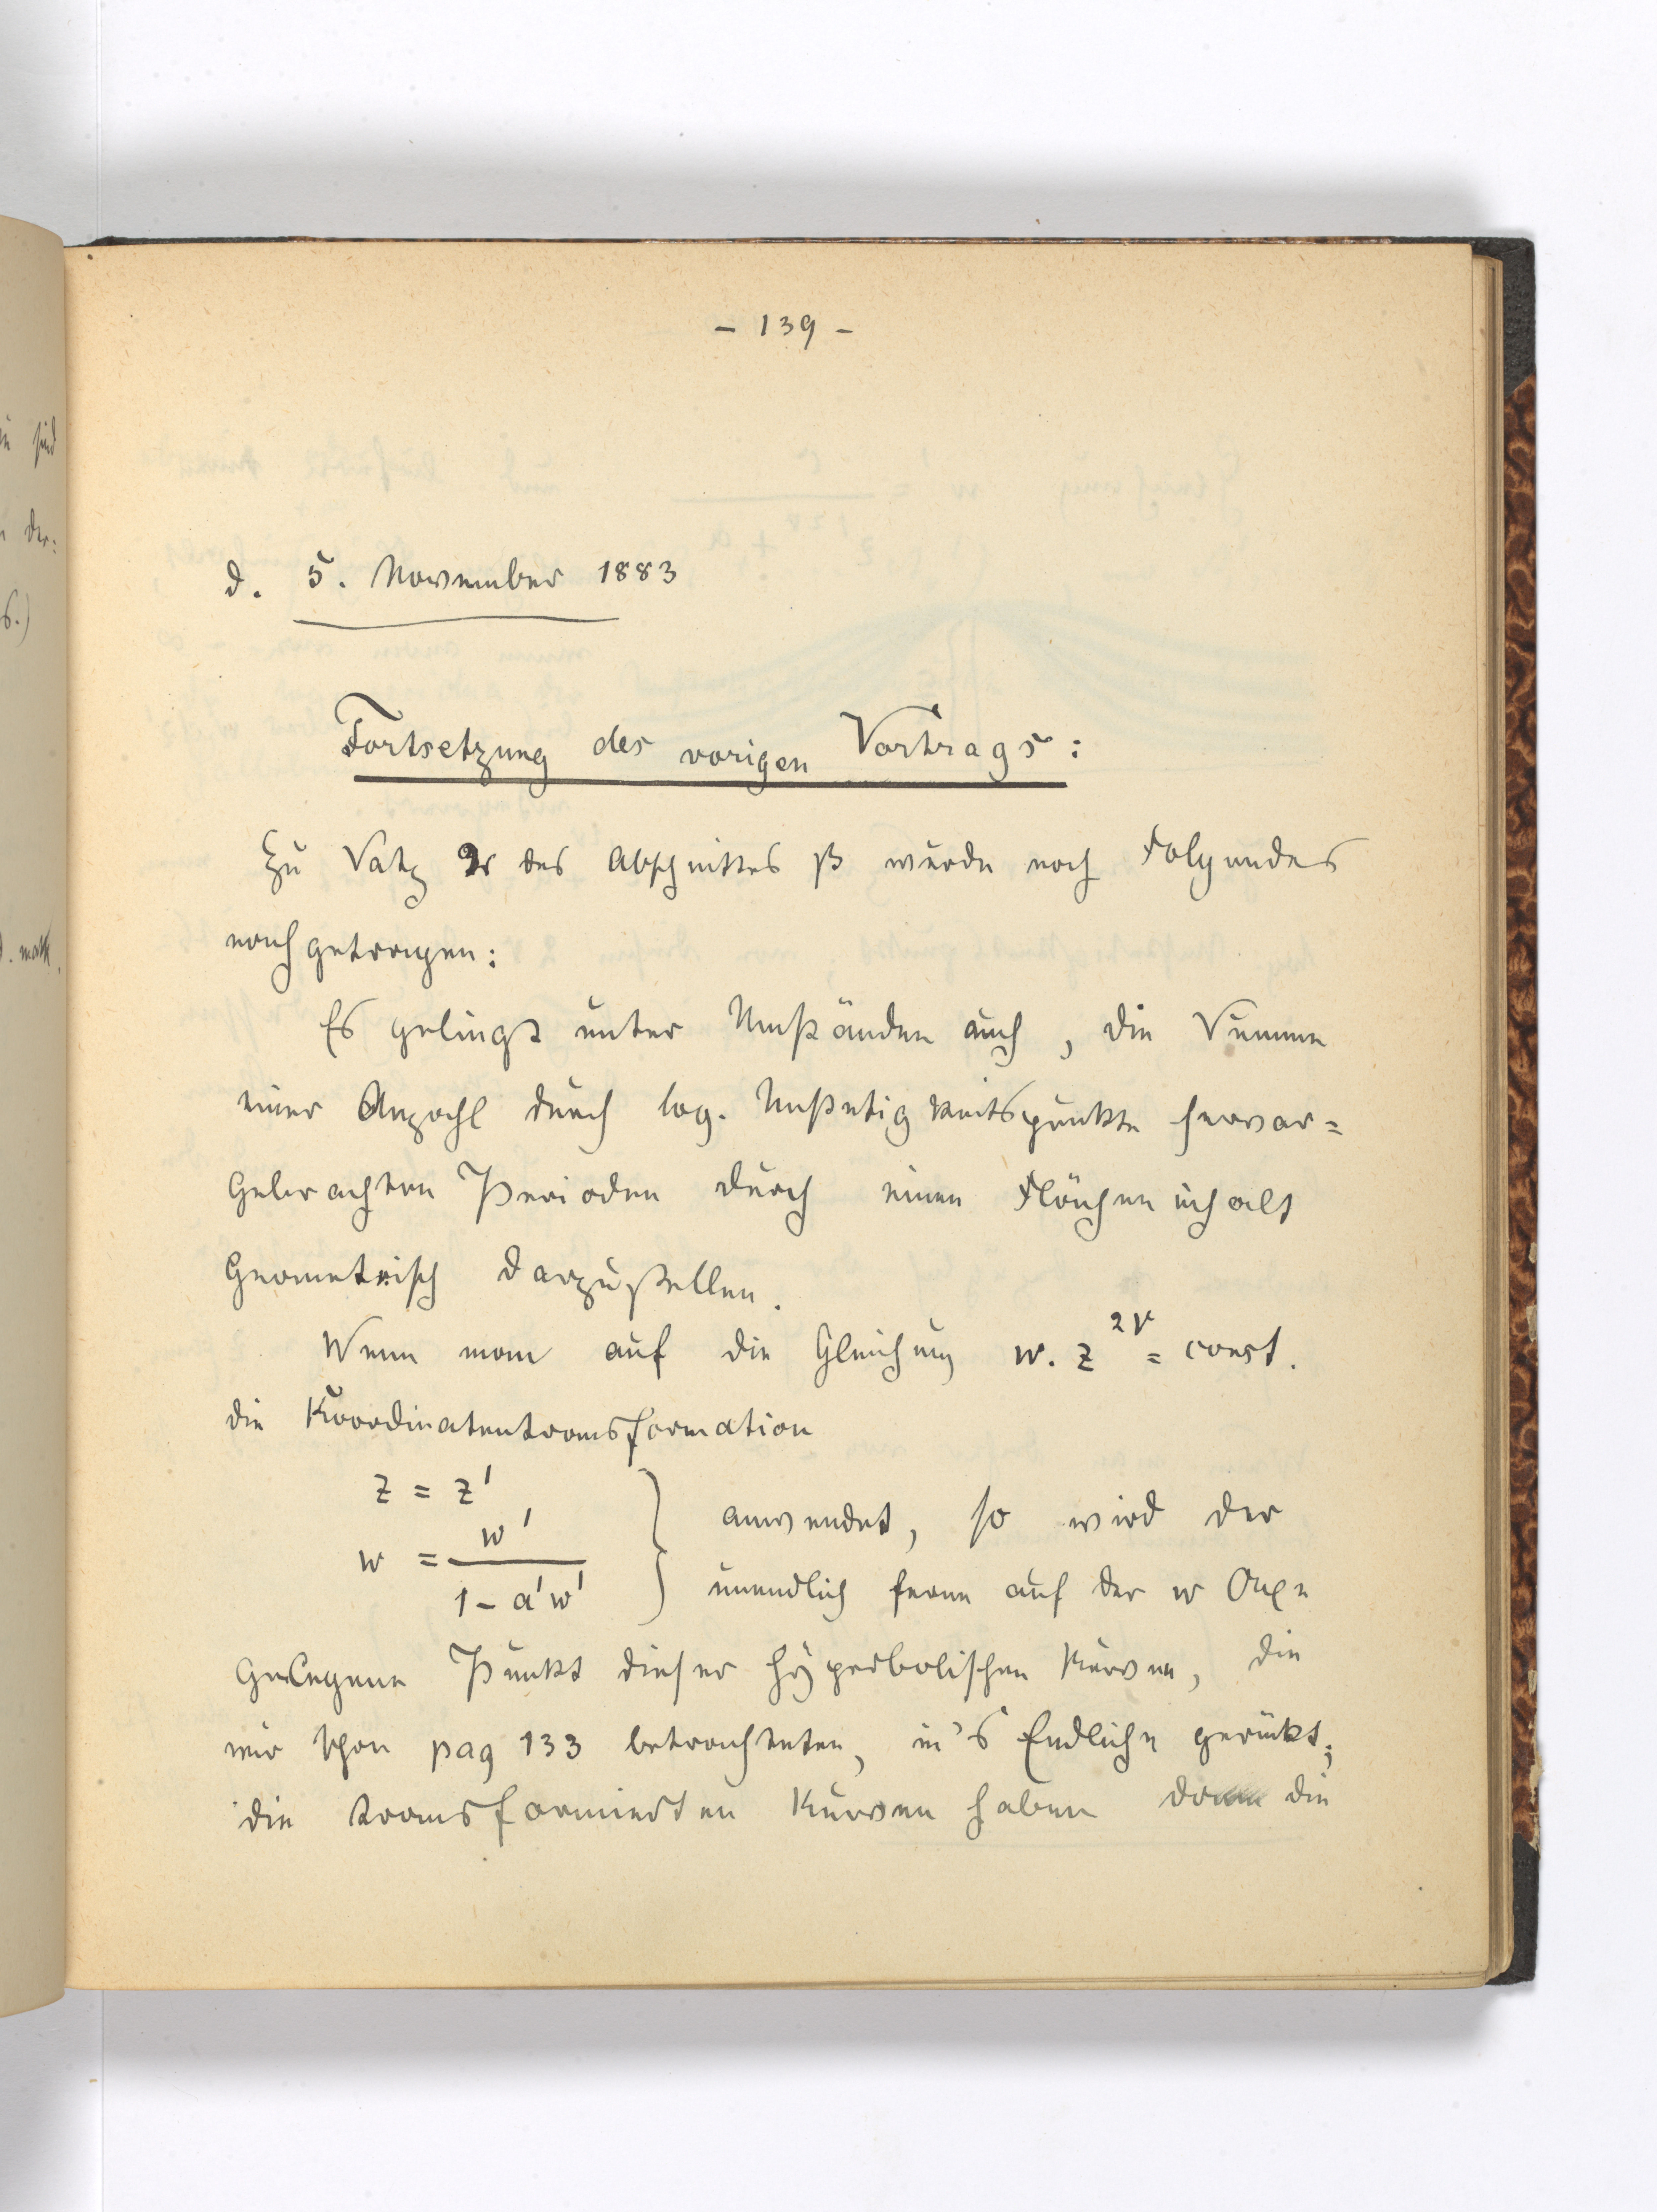 - 139 -
d. 5. November 1883
Fortsetzung des vorigen Vortrags:
Zu Satz 2 des Abschnittes β wurde noch Folgendes
nachgetragen:
Es gelingt unter Umständen auch, die Summe
einer Anzahl durch log. Unstetigkeitspunkte hervor=
gebrachten Perioden durch einen Flächeninhalt
geometrisch darzustellen.
Wenn man auf die Gleichung w. z^{2ν} = const.
die Koordinatentransformation
z = z'
w = w' / (1 - a'w') } anwendet, so wird der
unendlich ferne auf der w Axe
gelegene Punkt dieser hyperbolischen Kurven, die
wir schon pag 133 betrachteten, in's Endliche gerückt;
die transformierten Kurven haben die
in sind
der:
6.)
d. math.